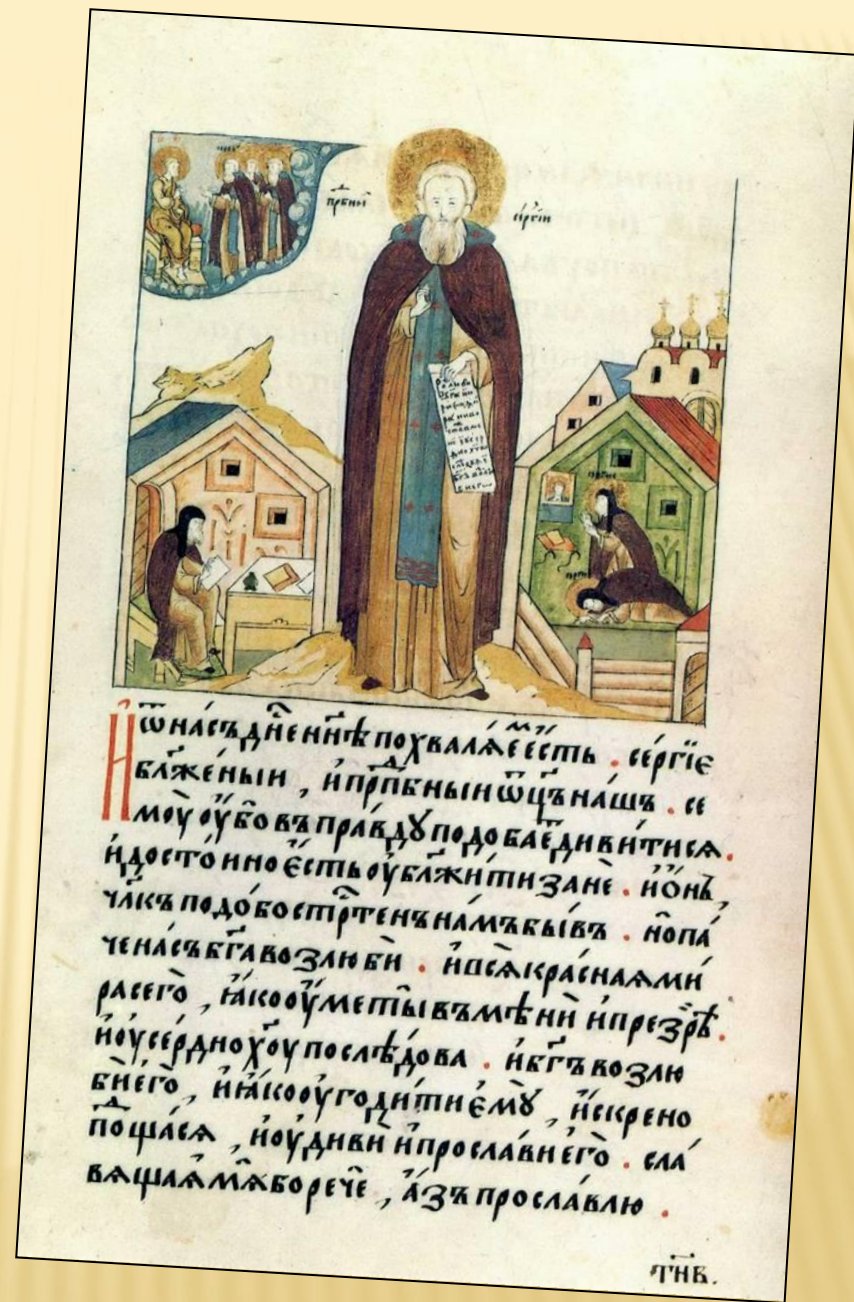 прⷣбныи сергіи
И ѿна́съ дн҃е ннѣ похвалѧ́еⷨ е́сть . се́ргїє
бл҃же́ныи , и прпⷣбныи ѿц҃ъ на́шъ . се
моу̀ оу́бо въ пра́вдꙋ подобаеⷮ диви́тисѧ .
и҆ досто́йно е҆сть оубл҃жи́ти занѐ . и҆ о́нъ ,
чл҃къ подо́бострⷭ҇тенъ на́мъ бы́въ . но па́
че на́съ бг҃а возлюбѝ . и всѧ̀ кра́снаѧ ми́
ра сего̀ , ꙗ҆́ко оу҆меты въмѣнѝ и презрѣ̀ .
и҆ оусе́рдно хо҃у послѣ́дова . и҆ бг҃ъ возлю
бѝ его̀ , и҆ ꙗ҆́ко оу҆годи́ти є҆мꙋ̀ , и҆́скрено
поⷣща́сѧ , и҆ оу҆дивѝ и҆ просла́ви его̀ . сла́
вѧщаѧ мѧ̀ бо речѐ , а҆́зъ просла́влю .
тн҃в.